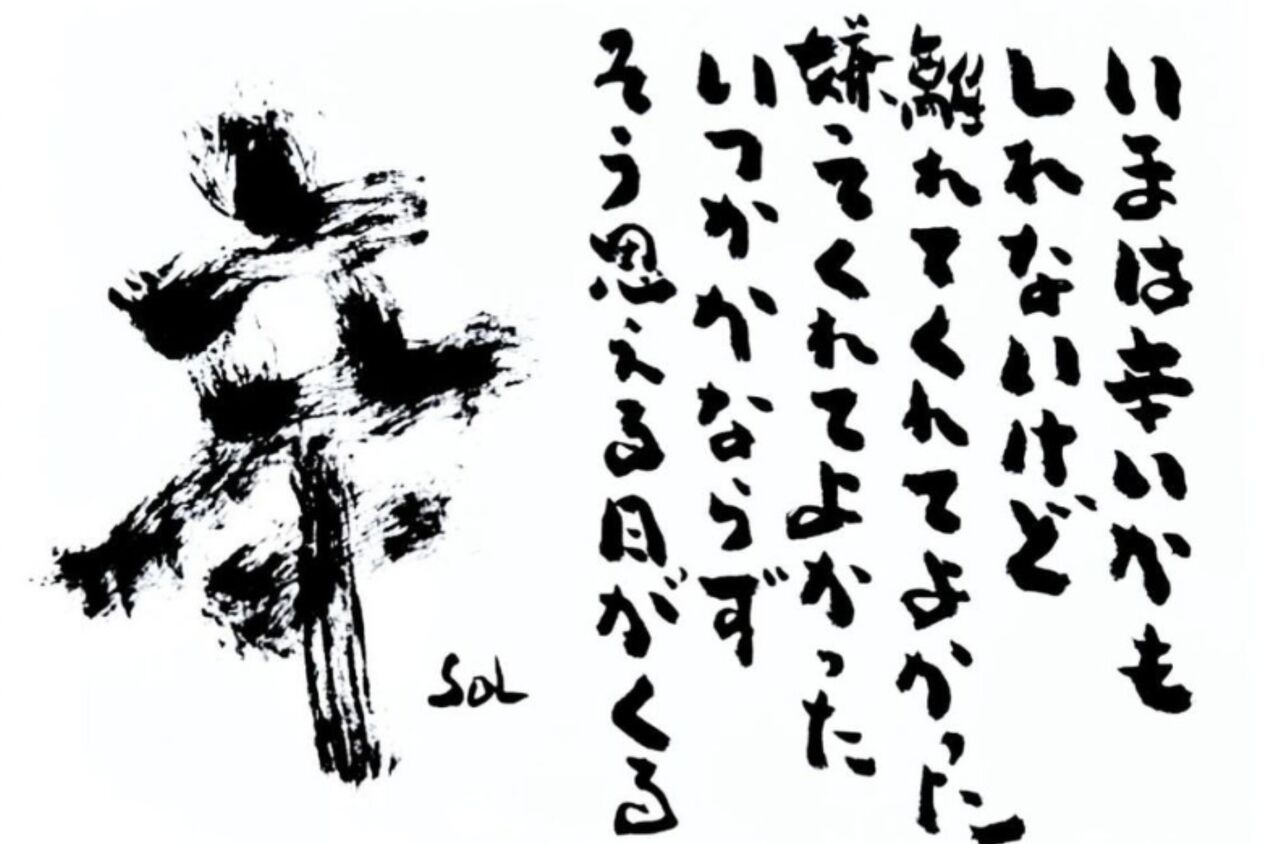 いまは辛いかも
しれないけど
離れてくれてよかった
嫌ってくれてよかった
いつかかならず
そう思える日がくる
幸
SOL